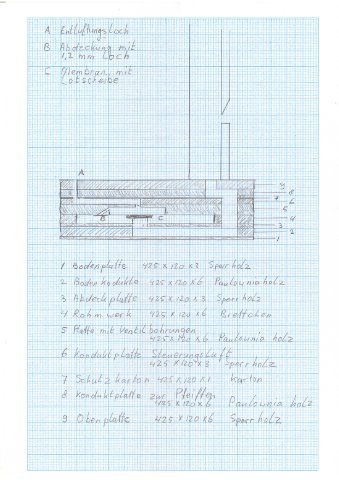 A Entlüftungsloch
B Abdeckung mit
1,2 mm Loch
C Membran, mit
Lotscheibe
A
B
C
9
8
7
6
5
4
3
2
1
1 Bodenplatte 425 x 120 x 3 Sperrholz
2 Boden Kondukte 425 x 120 x 6 Paulownia holz
3 Abdeckplatte 425 x 120 x 3 Sperrholz
4 Rahmwerk 425 x 120 x 6 Brettchen
5 Platte mit Ventilbohrungen
425 x 120 x 6 Paulownia holz
6 Konduktplatte Steuerungsluft
425 x 120 x 3 Sperrholz
7 Schutz karton 425 x 120 x 1 Karton
8 Konduktplatte zur Pfeiffen
425 x 120 x 6 Paulownia holz
9 Obenplatte 425 x 120 x 6 Sperrholz